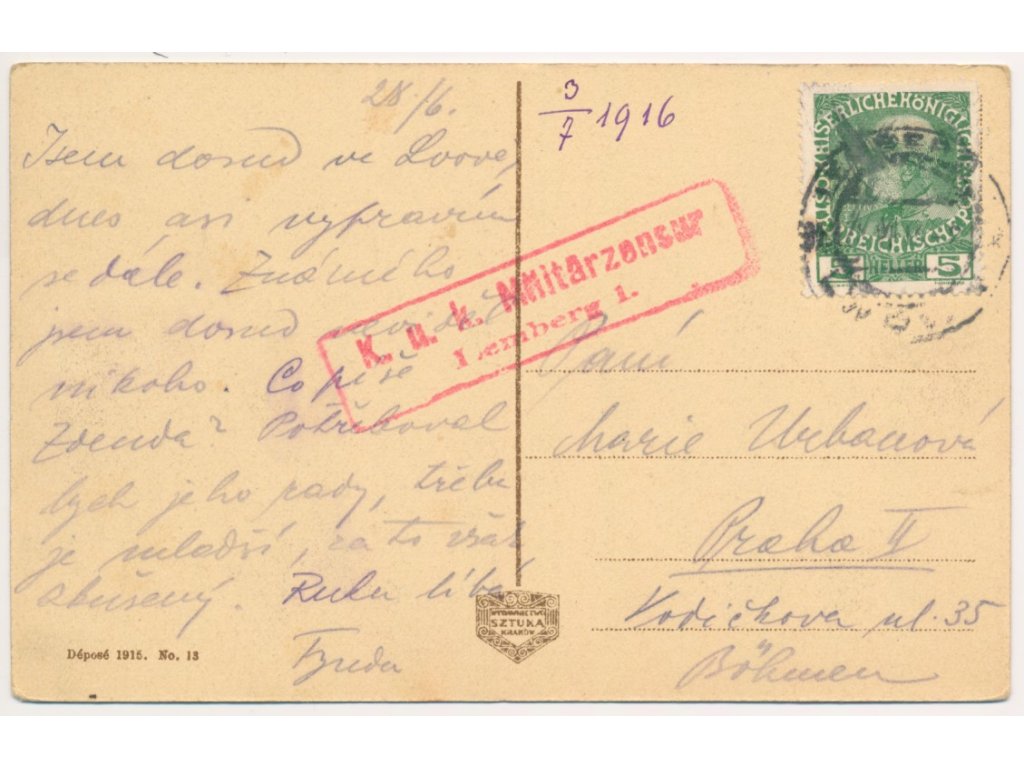 28/6.
Jsem dosud ve Lvově,
dnes asi vypravím
se dále. Známého
jsem dosud neviděl
nikoho. Co píše
Zdenda? Potřeboval
bych jeho rady, třeba
je mladší, za to však
zkušený. Ruku líbá
Déposé 1915. No. 13
WYDAWNICTWO
SZTUKA
KRAKÓW
3/7 1916
K. u. k. Militärzensur
Lemberg 1.
5 HELLER 5
Paní
Marie Urbanová
Praha II
Vodičkova ul. 35
Böhmen